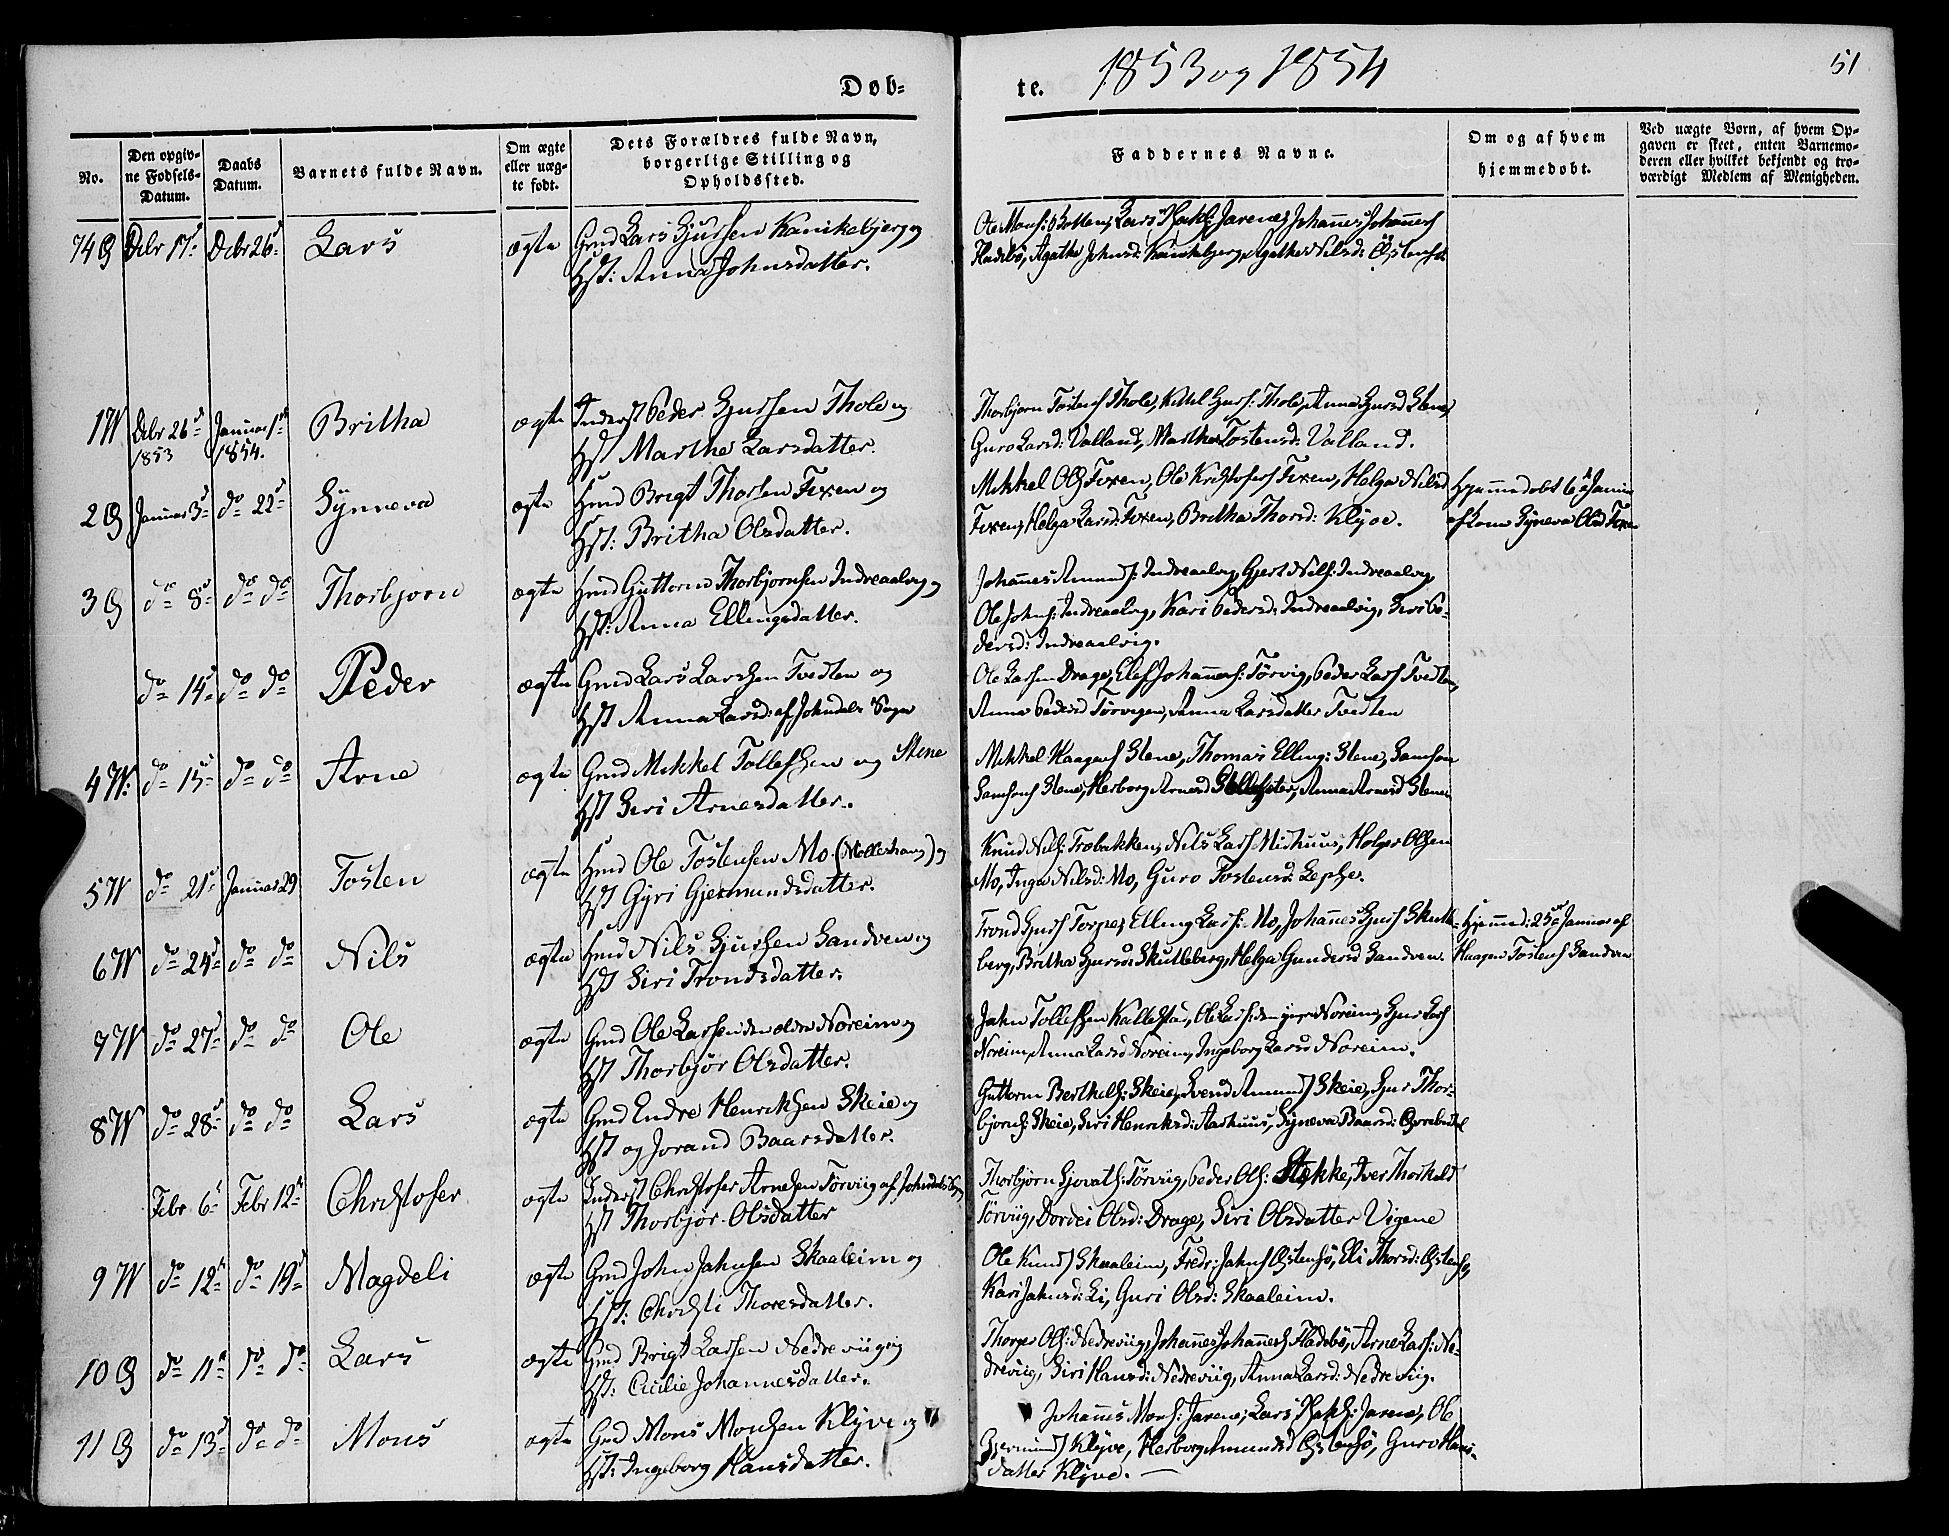 Døb-
te.
1853 og 1854
51
No.
Den opgiv-
ne Fødsels-
Datum.
Daabs
Datum.
Barnets fulde Navn.
Om ægte
eller uæg-
te født.
Dets Forældres fulde Navn,
borgerlige Stilling og
Opholdssted.
Faddernes Navne.
Om og af hvem
hjemmedøbt.
Ved uægte Børn, af hvem Op-
gaven er skeet, enten Barnemo-
deren eller hvilket bekjendt og tro-
værdigt Medlem af Menigheden.
74 Decbr 17 Decbr 26 Lars ægte Gmd Lars Gjursen Kanikebjerg og
Hst: Anna Johnsdatter.
Johannes Johanness
Fladebø, Agatha Johnsd: Kanikebjerg, Agatha Nilsd:
1 W Decbr 26 Januar 1 Britha ægte Inderst Peder Gjursen Thole og
1853 1854. Hst Marthe Larsdatter.
Thorbjørn Tostens Thole, Kittel Gjurs: Thole, Anna Gjursd Stene,
Guro Larsd: Valland, Martha Tostensd: Valland.
2 Januar 3 do 22 Synneva ægte Hmd Brigt Thorsen Fixen og
Hst: Britha Olsdatter.
Mikkel Ols Fixen, Ole Kristofers Fixen, Helga Nilsd
Fixen, Helga Larsd: Fixen, Britha Thorsd: Klyve.
Hjemmedøbt 6 Januar
af Kone Syneva Olsd Fixen
3 do 8 do do Thorbjørn ægte Hmd Guttorm Thorbjørnsen Indreaalvig og
Hst: Anna Ellingsdatter.
Johannes Amunds: Indreaalvig, Gjert Nils: Indreaalvig,
Ole Johns: Indreaalvig, Kari Pedersd: Indreaalvig, Siri Pe-
dersd: Indreaalvig.
do 14 do do Peder ægte Gmd Lars Larssen Tvedten og
Hst Anna Larsd: af Jondals Sogn
Ole Larsen Drage, Elef Johanness: Tørvig, Peder Lars Tvedten,
Anna Pedersd Tørvigen, Anna Larsdatter Tvedten
4 W. do 15 do do Arne ægte Gmd Mikkel Tollefsen og Stene
Hst Siri Arnesdatter.
Mikkel Haagens Stene, Thomas Elling: Stene, Samson
Samsons Stene, Herborg Arnesd, Anna Arnesd Stene
5 W do 21 Januar 29 Tosten ægte Hmd Ole Tostensen Mo (Møllerhaug) og
Hst Gyri Gjermundsdatter.
Knud Nils: Træbakken, Nils Lars Mishuus, Holger Olsen
Mo, Inga Nilsd: Mo, Guro Tostensd: Lepse.
6 W do 24 do do Nils ægte Hmd Nils Gjursen Sandven og
Hst Siri Trondsdatter.
Trond Gjurs Torpe, Elling Lars: Mo, Johannes Gjurs Skutle-
berg, Britha Gjursd: Skutleberg, Helga Gundersd Sandven.
Hjemmed: 25 Januar af
Haagen Tostens Sandven
7 W do 27 do do Ole ægte Gmd Ole Larsen den ældre Noreim og
Hst Thorbjør Olsdatter.
John Tollefsen Kallestad, Ole Lars: den yngre Noreim, Gjur Lars
Noreim, Anna Larsd Noreim, Ingeborg Larsd Noreim.
8 W do 28 do do Lars ægte Gmd Endre Henriksen Skeie og
Hst og Jorand Baarsdatter.
Guttorm Berthels: Skeie, Svend Amunds Skeie, Gjur Thor-
bjørns: Skeie, Siri Henriksd: Aarhuus, Syneva Baarsd:
Febr 6 Febr 12 Christofer ægte Inderst Christofer Arnesen Tørviig af Jondals Sogn
Hst Thorbjør Olsdatter
Thorbjørn Tørviig, Peder Ols: Stekke, Iver Thorkels
Tørviig, Dordei Olsd: Drage, Siri Olsdatter Vigene
9 W do 12 do 19 Magdeli ægte Gmd John Johnsen Skaaleim og
Hst: Christi Thoresdatter.
Ole Knuds Skaaleim, Fredr: Johns Østensø, Eli Thorsd: Østensø,
Kari Johnsd: Li, Guri Olsd: Skaaleim.
10 do 11 do do Lars ægte Gmd Brigt Larsen Nedreviig og
Hst: Cicilie Johannesdatter.
Thorger Ols: Nedreviig, Johannes Johanness Fladebø, Arne Lars: Ne-
dreviig, Siri Hansd: Nedreviig, Anna Larsd: Nedreviig.
11 do 13 do do Mons ægte Gmd Mons Monsen Klyve og
Hst: Ingeborg Hansdatter.
Johannes Mons: Jarene, Lars Jarene, Ole
Gjermunds Klyve, Herborg Amundsd Østensø, Guro Hans-
datter Klyve.